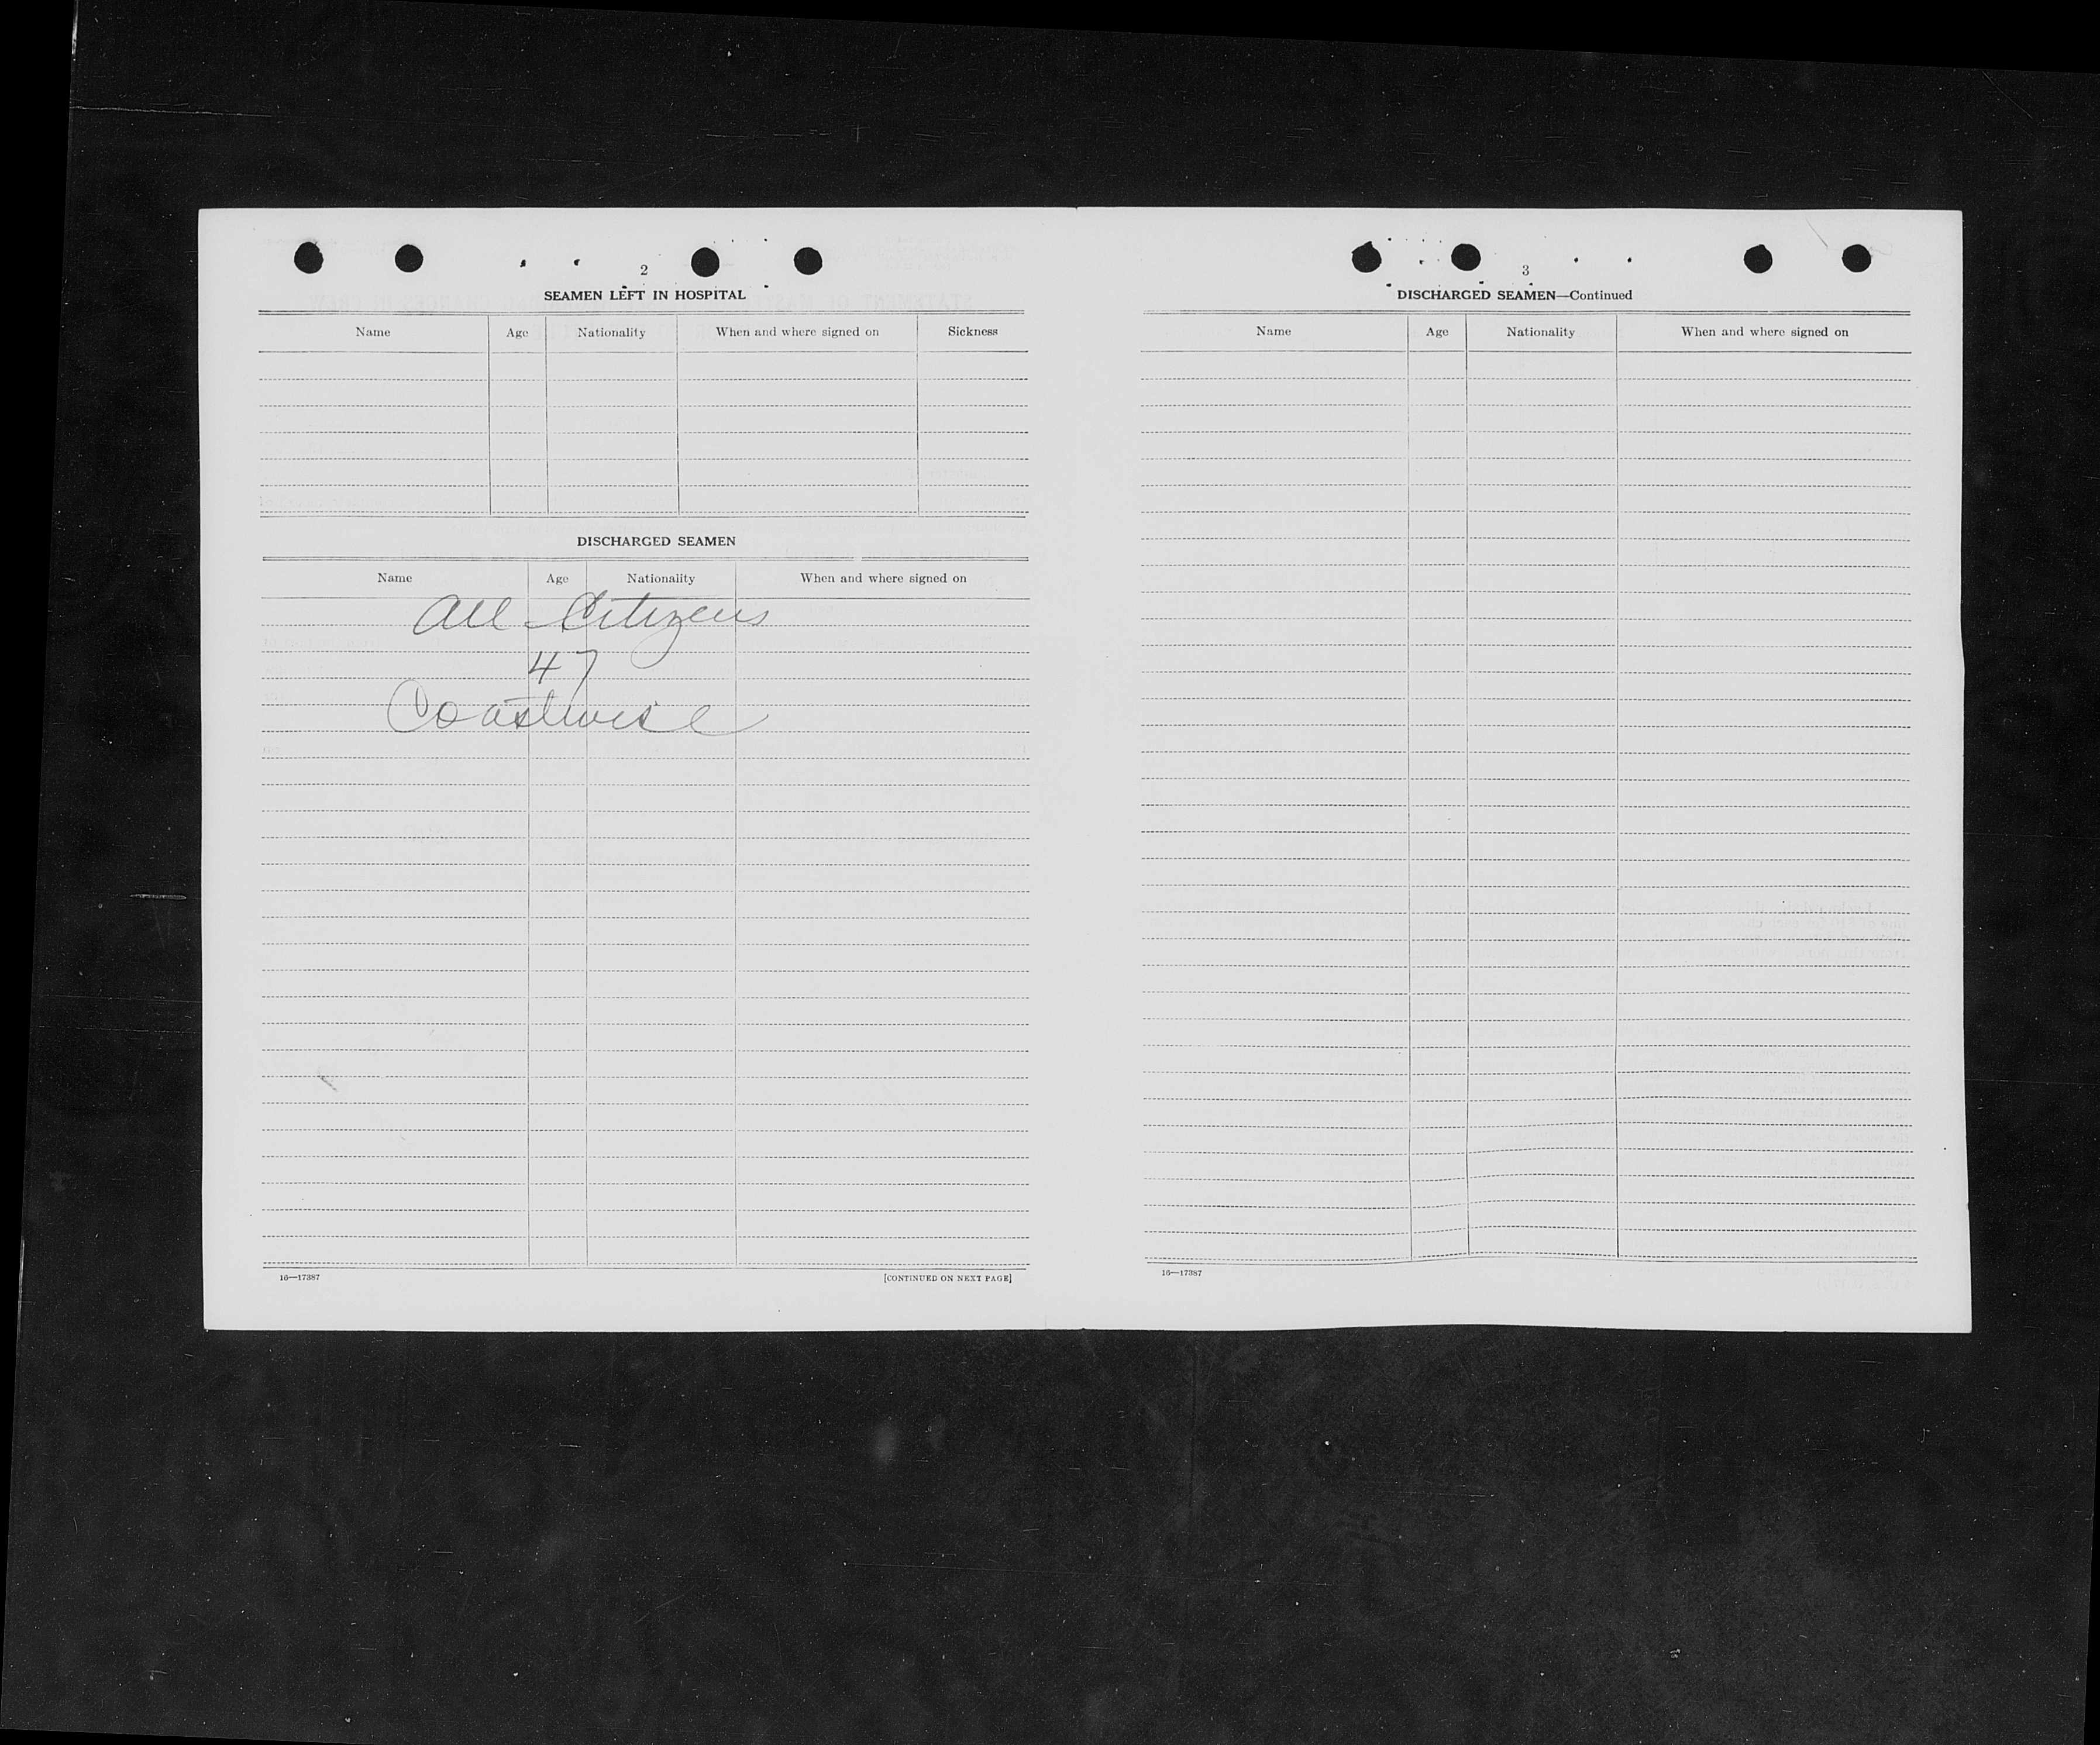 2
SEAMEN LEFT IN HOSPITAL
Name Age Nationality When and where signed on Sickness
DISCHARGED SEAMEN
Name Age Nationality When and where signed on
All Citizens
47
Coastwise
16—17387 [CONTINUED ON NEXT PAGE]
3
DISCHARGED SEAMEN—Continued
Name Age Nationality When and where signed on
16—17387